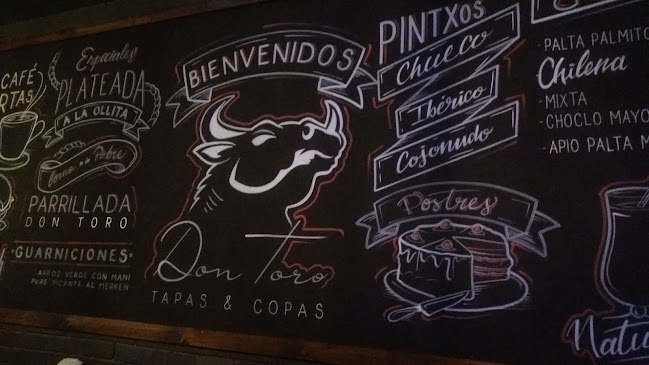 CAFÉ
RTAS
Especiales
PLATEADA
A LA OLLITA
lomo a lo Pobre
PARRILLADA
DON TORO
GUARNICIONES
ARROZ VERDE CON MANI
PURE PICANTE AL MERKEN
BIENVENIDOS
Don Toro
TAPAS & COPAS
PINTXOS
Chueco
Ibérico
Cojonudo
Postres
-PALTA PALMITO
Chilena
-MIXTA
-CHOCLO MAYO
-APIO PALTA M
Natu